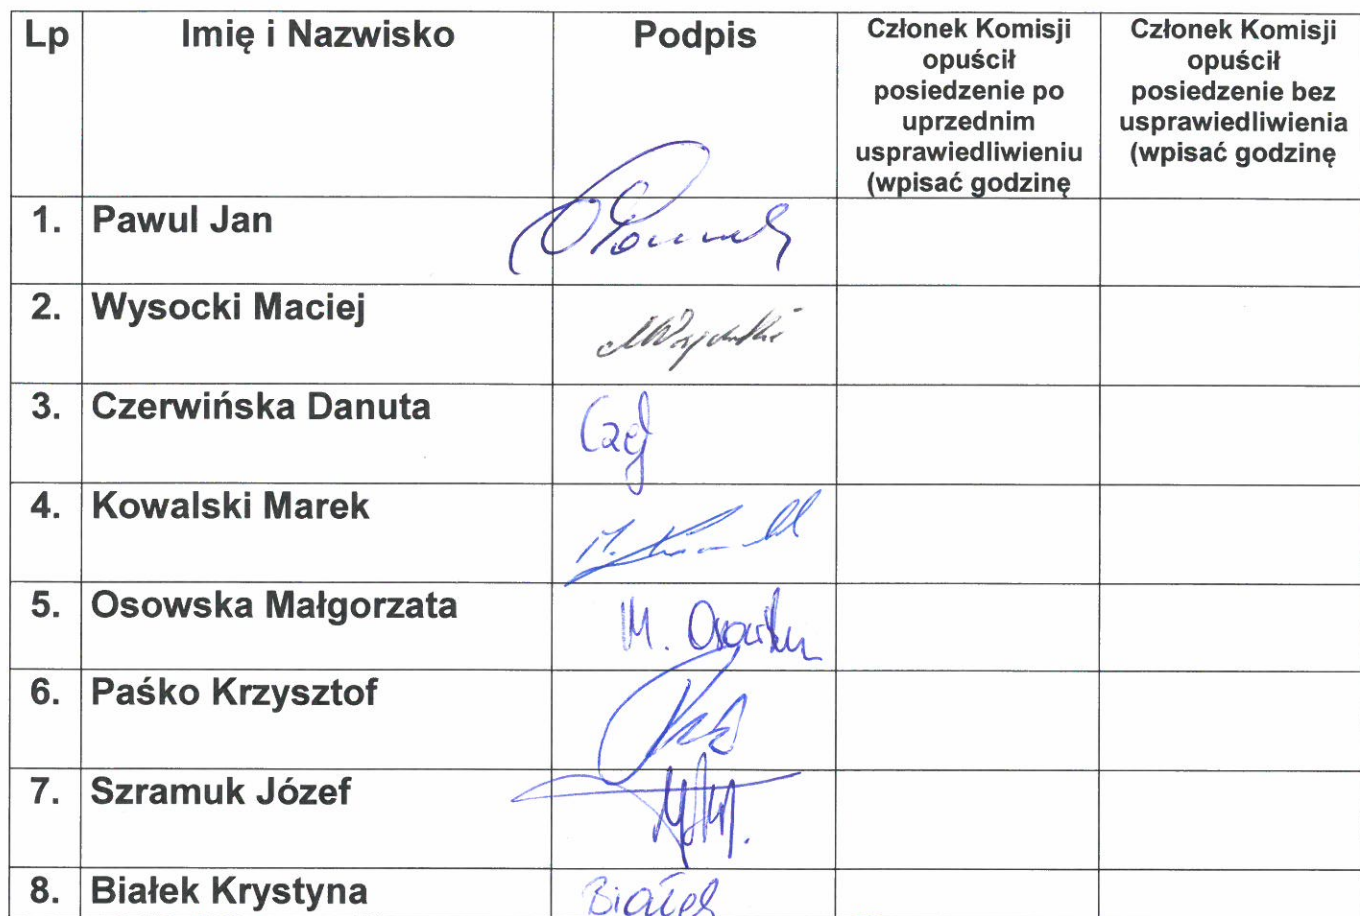 Lp Imię i Nazwisko Podpis Członek Komisji opuścił posiedzenie po uprzednim usprawiedliwieniu (wpisać godzinę Członek Komisji opuścił posiedzenie bez usprawiedliwienia (wpisać godzinę
1. Pawul Jan
2. Wysocki Maciej
3. Czerwińska Danuta
4. Kowalski Marek
5. Osowska Małgorzata M. Osowska
6. Paśko Krzysztof
7. Szramuk Józef
8. Białek Krystyna Białek